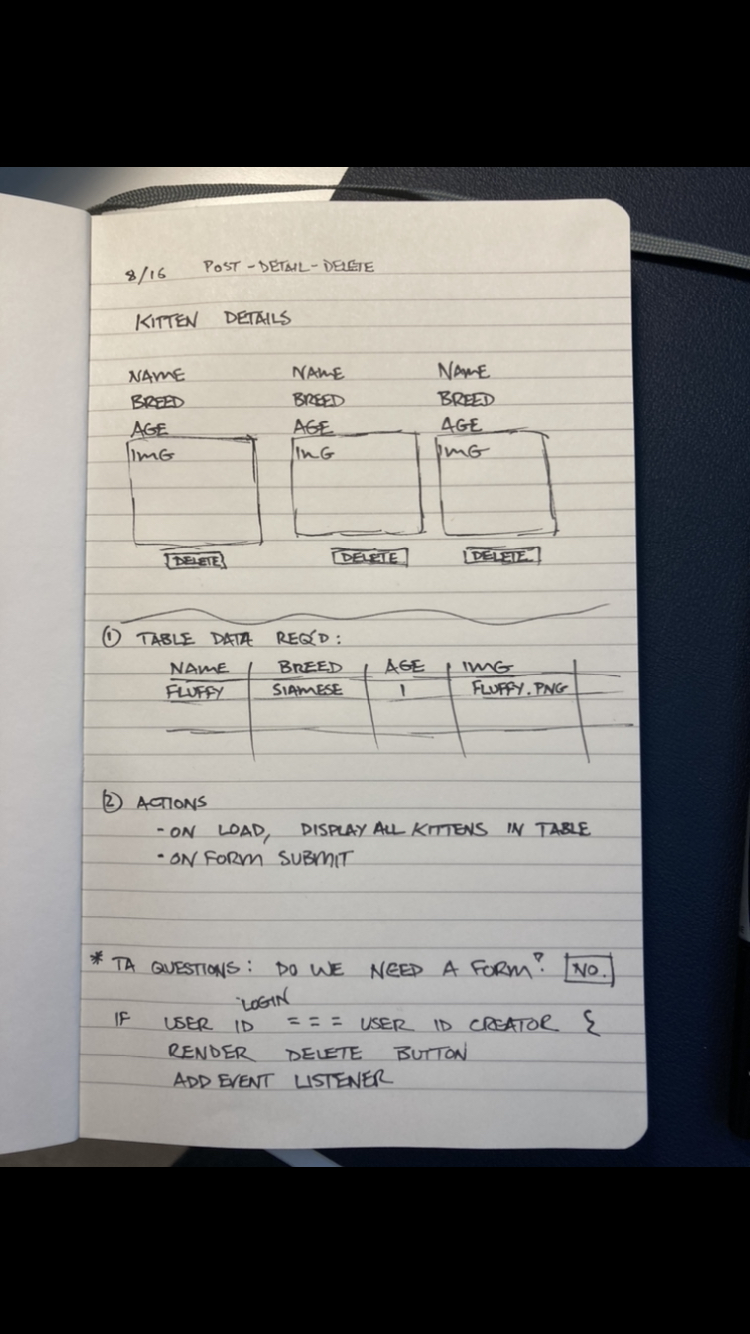 8/16 POST-DETAIL-DELETE
KITTEN DETAILS
NAME NAME NAME
BREED BREED BREED
AGE AGE AGE
IMG IMG IMG
DELETE DELETE DELETE
① TABLE DATA REQ'D:
NAME BREED AGE IMG
FLUFFY SIAMESE 1 FLUFFY.PNG
② ACTIONS
- ON LOAD, DISPLAY ALL KITTENS IN TABLE
- ON FORM SUBMIT
* TA QUESTIONS: DO WE NEED A FORM? NO.
LOGIN
IF USER ID === USER ID CREATOR {
RENDER DELETE BUTTON
ADD EVENT LISTENER